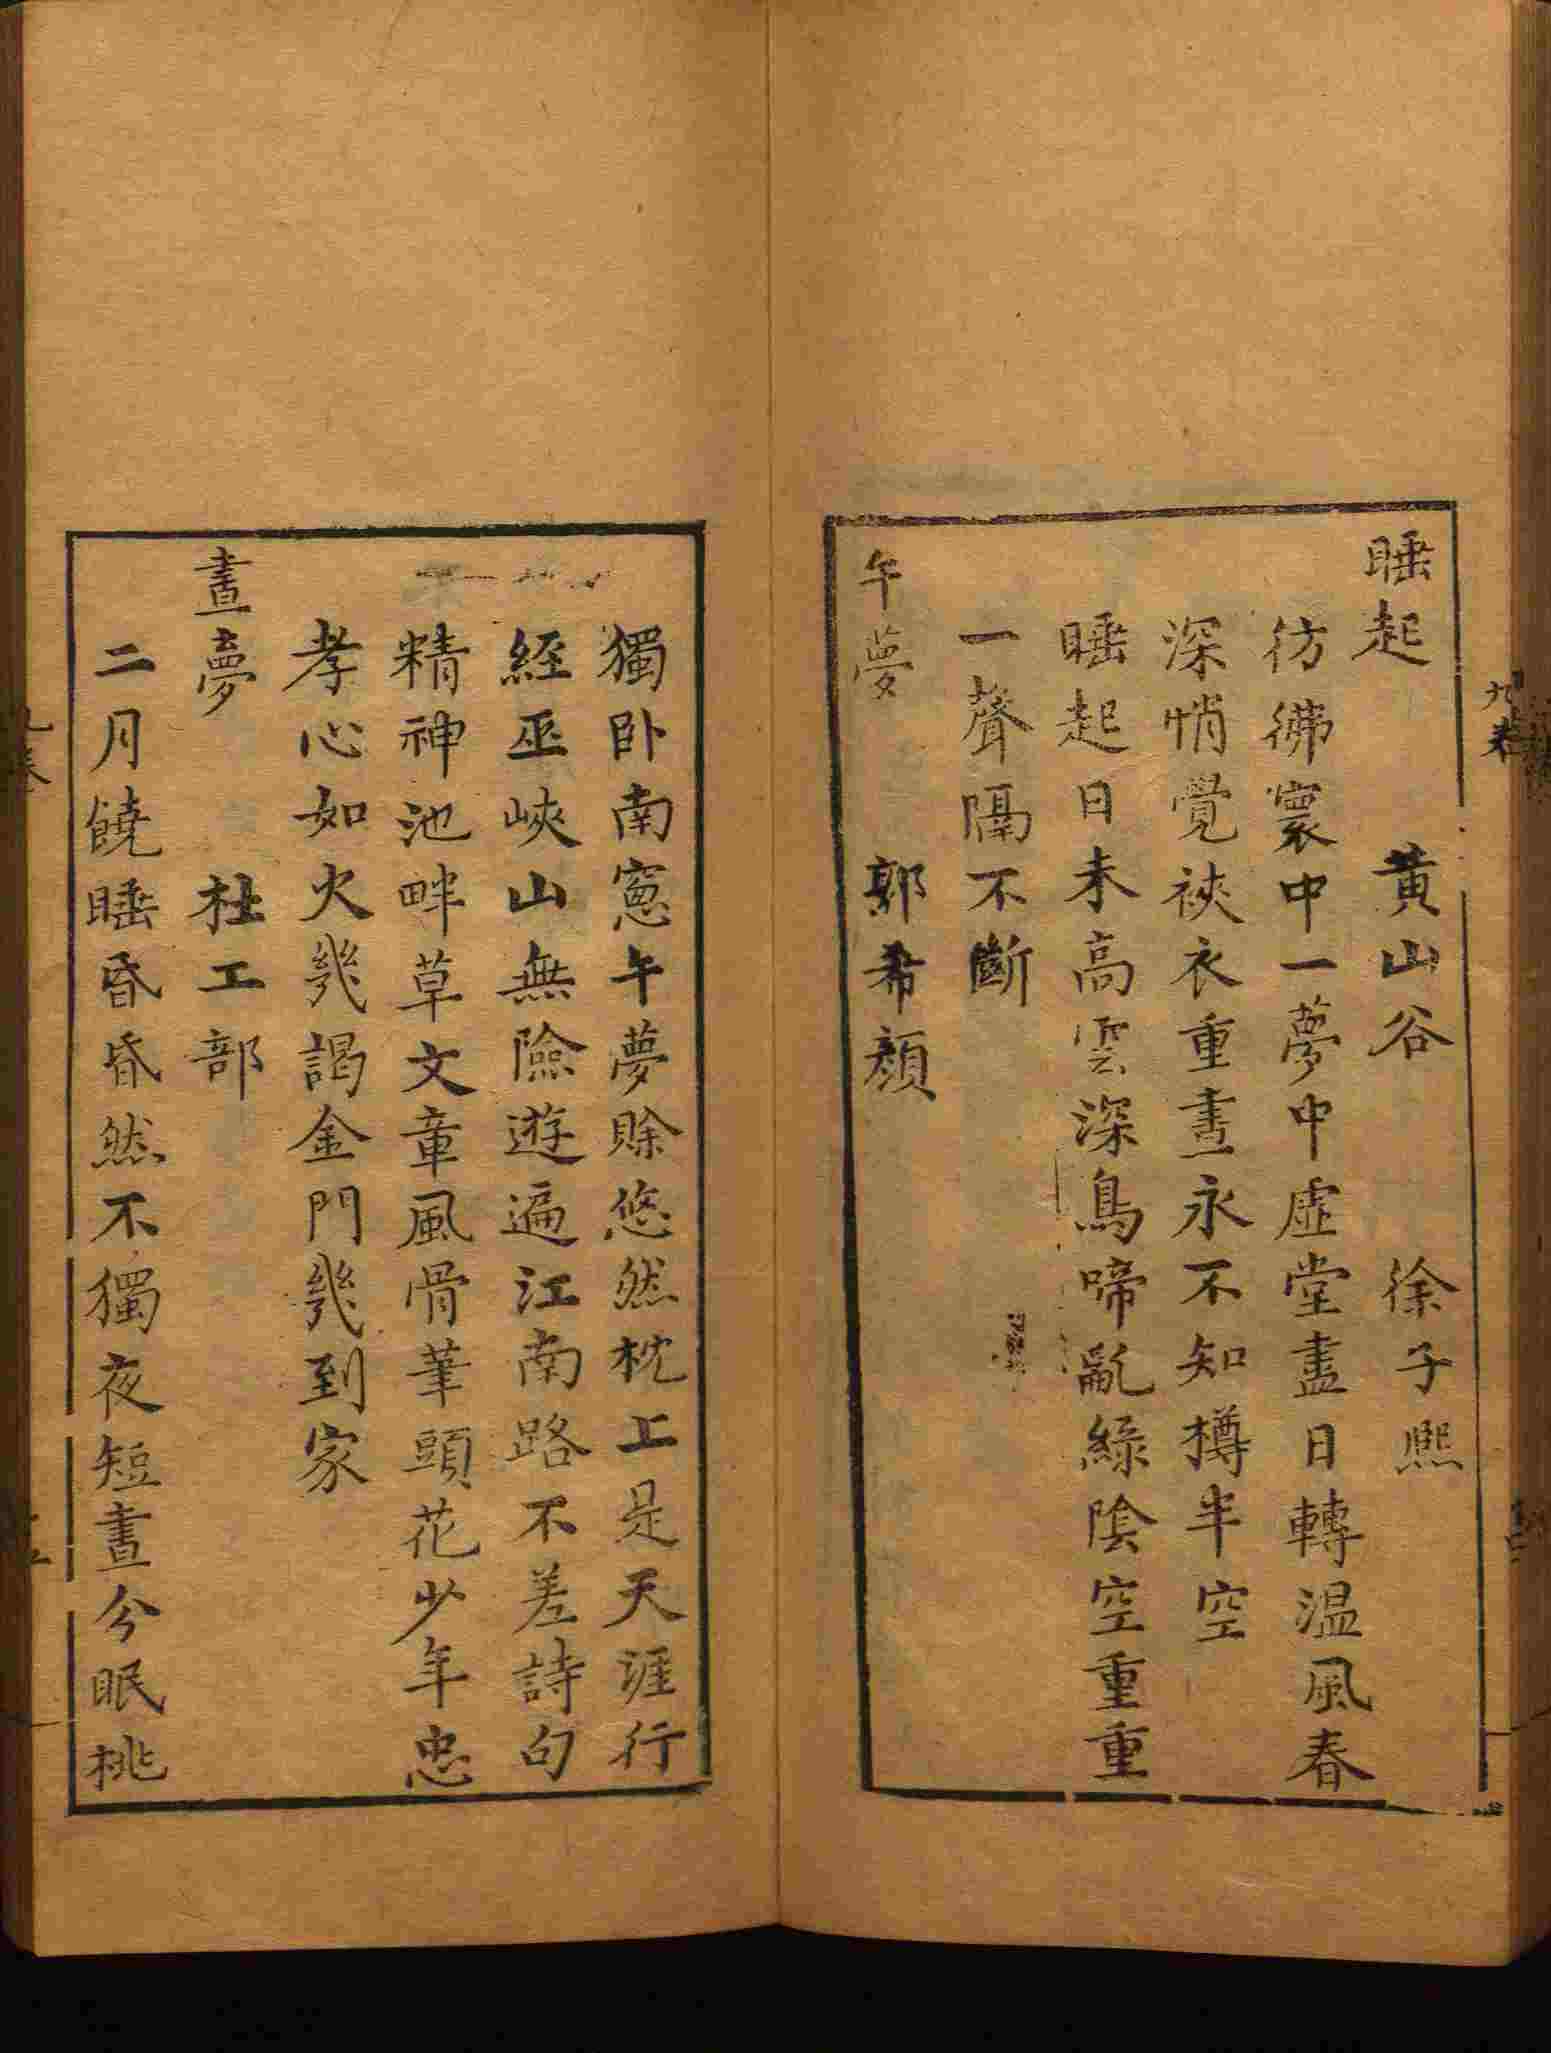 睡起　黄山谷　徐子熈
彷彿寰中一夢中虚堂盡日轉温風春
深悄覺裌衣重晝永不知樽半空
睡起日未高雲深鳥啼亂綠陰空重重
一聲隔不斷
午夢　郭希顔
獨卧南窻午夢賖悠然枕上是天涯行
經巫峽山無險遊遍江南路不差詩句
精神池畔草文章風骨筆頭花少年忠
孝心如火幾謁金門幾到家
晝夢　杜工部
二月饒睡昏昏然不獨夜短晝分眠桃
九卷